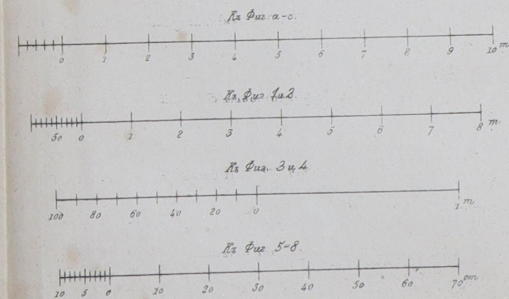 Къ Фиг. a-c.
0 1 2 3 4 5 6 7 8 9 10 m
Къ Фиг. 1 и 2.
50 0 1 2 3 4 5 6 7 8 m.
Къ Фиг. 3 и 4
100 80 60 40 20 0 1 m
Къ Фиг. 5-8.
10 5 0 10 20 30 40 50 60 70 cm